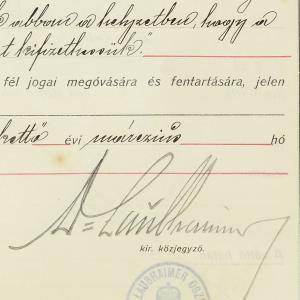 abban a helyzetben, hogy a
t kifizethessük."
fél jogai megóvására és fentartására, jelen
kettő évi márczius hó
Dr Laubhaimer
kir. közjegyző.
LAUBHAIMER OSZ